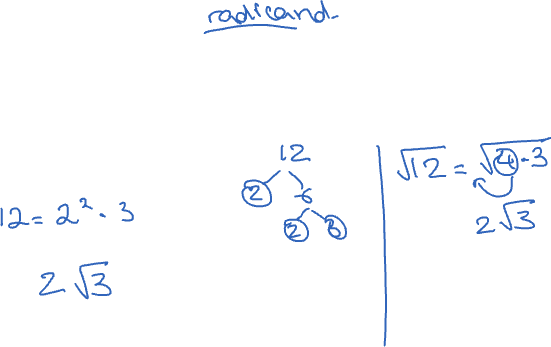 radicand.
12
2 6
2 3
12 = 2² · 3
2√3
√12 = √4·3
2√3